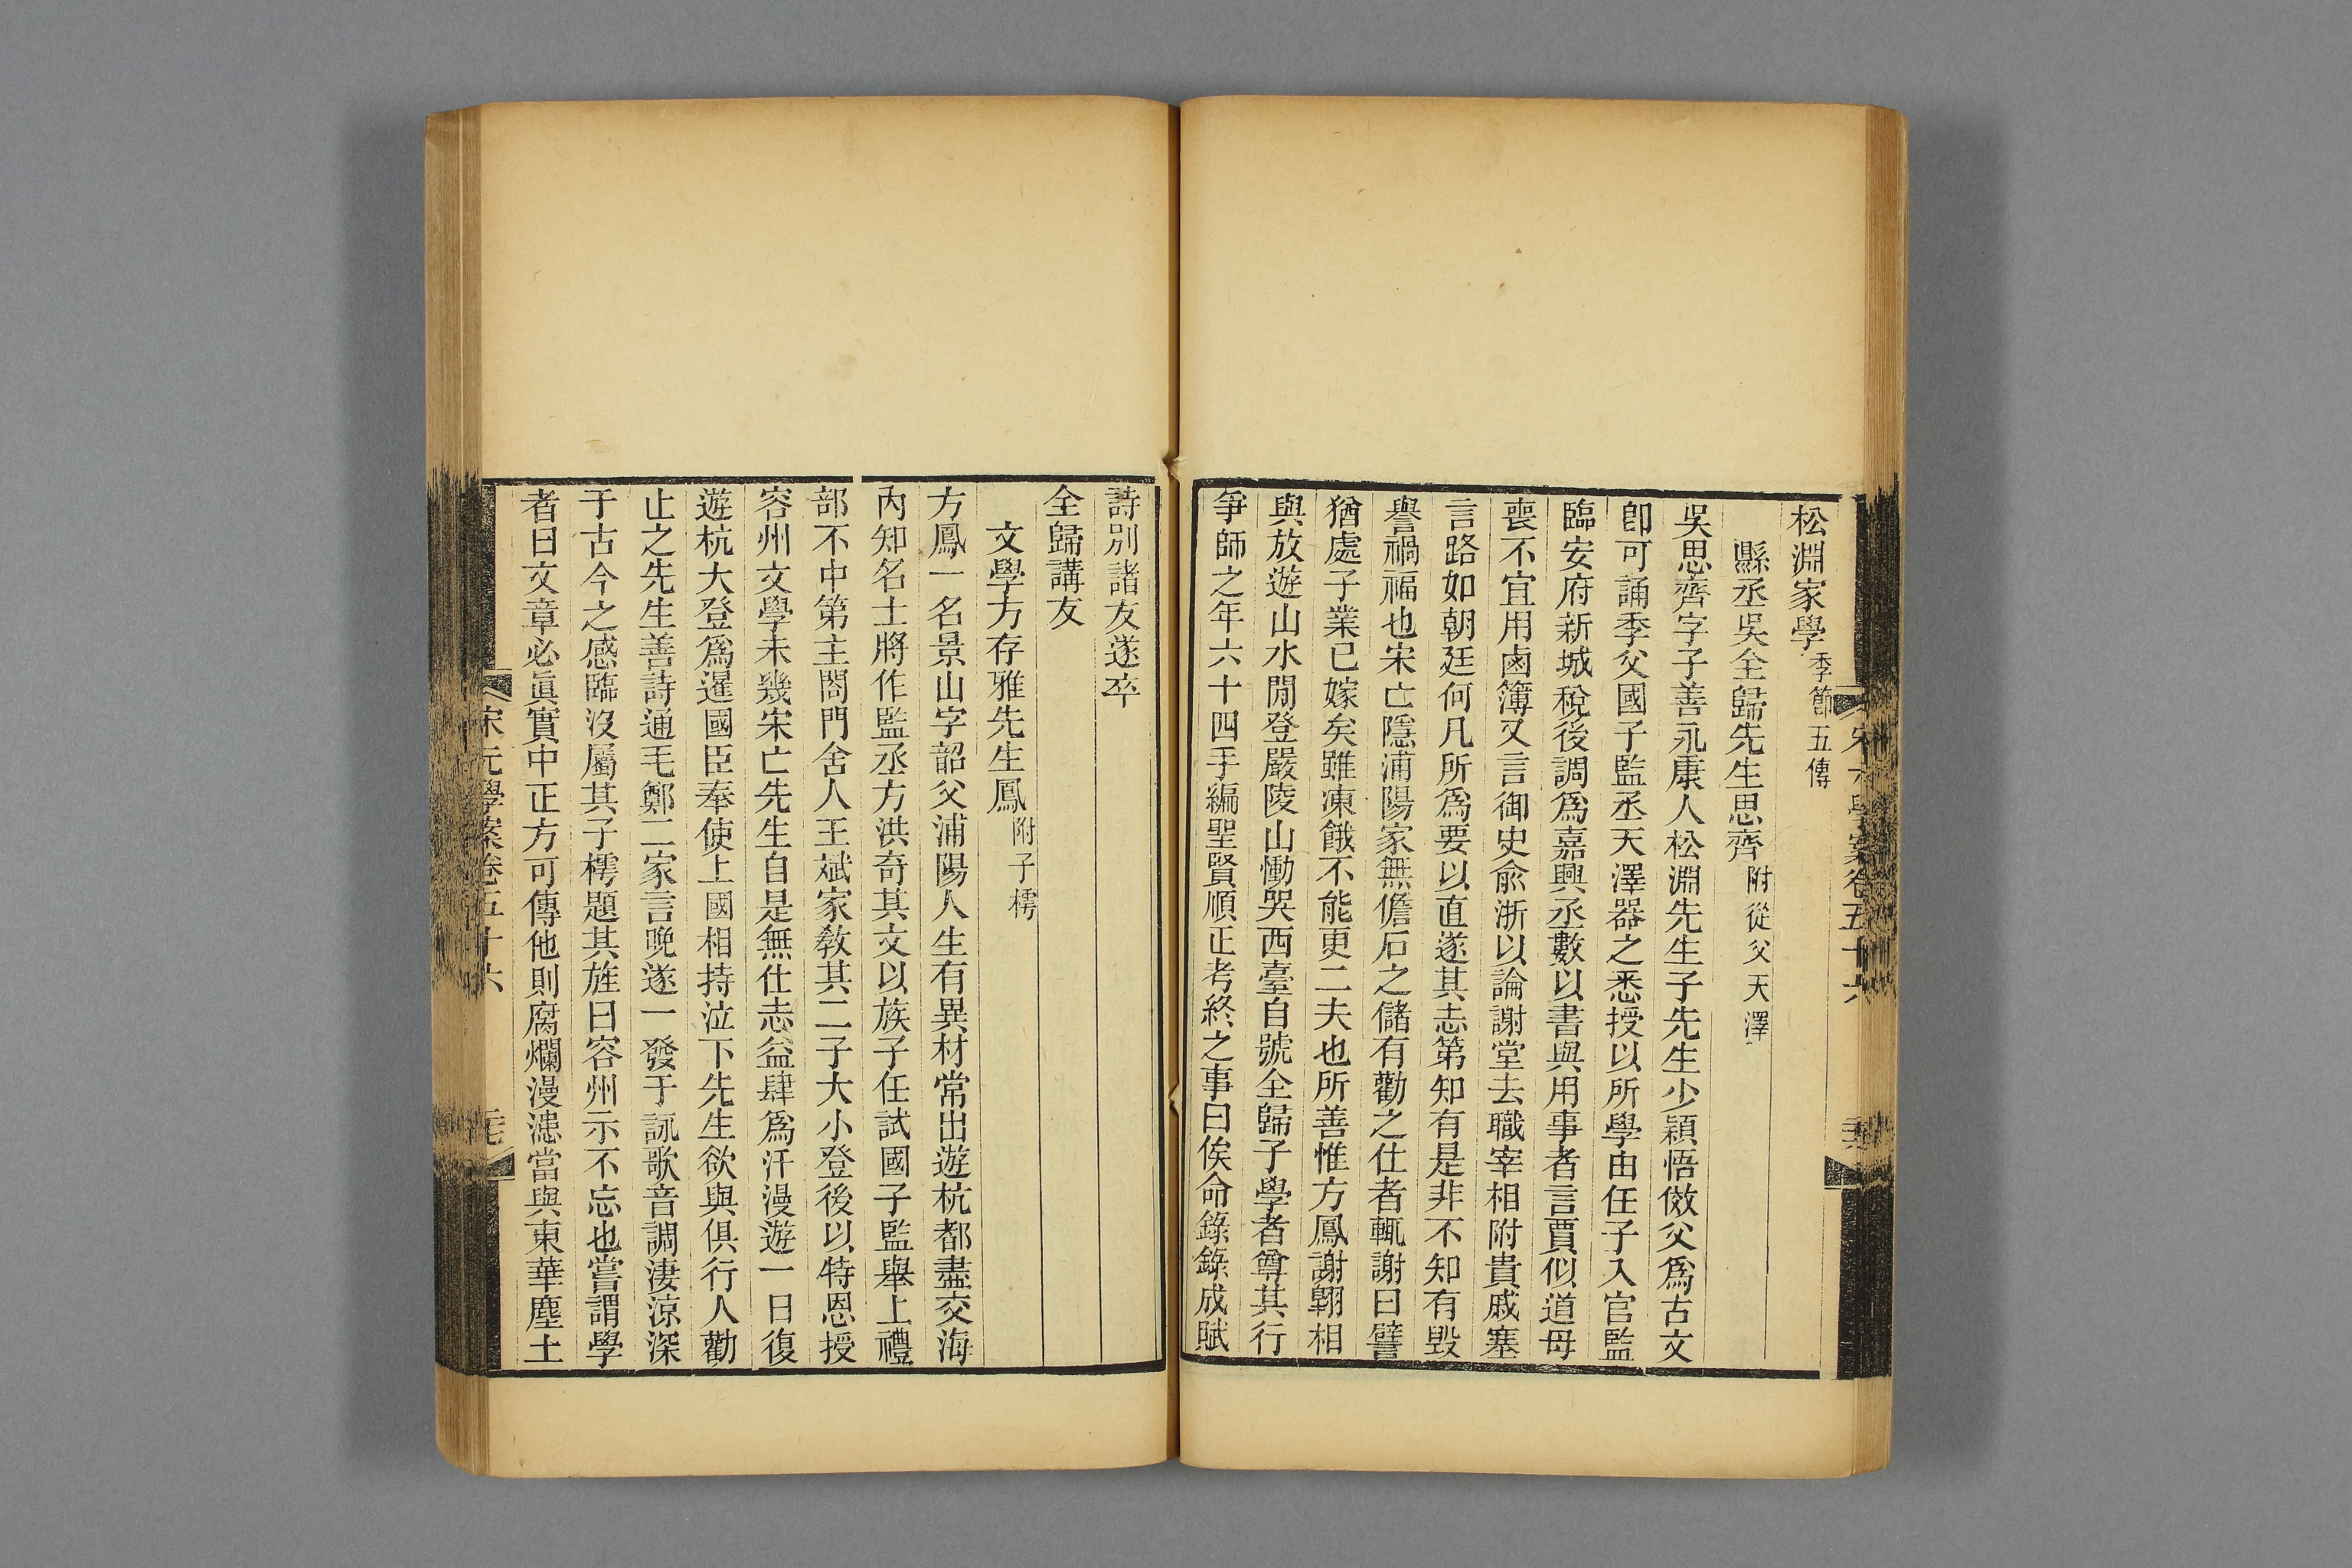 松淵家學季節五傳
縣丞吳全歸先生思齊附從父天澤
吳思齊字子善永康人松淵先生子先生少穎悟倣父爲古文
卽可誦季父國子監丞天澤器之悉授以所學由任子入官監
臨安府新城稅後調爲嘉興丞數以書與用事者言賈似道母
喪不宜用鹵簿又言御史兪浙以論謝堂去職宰相附貴戚塞
言路如朝廷何凡所爲要以直遂其志第知有是非不知有毀
譽禍福也宋亡隱浦陽家無儋石之儲有勸之仕者輒謝曰譬
猶處子業已嫁矣雖凍餓不能更二夫也所善惟方鳳謝翺相
與放遊山水閒登嚴陵山慟哭西臺自號全歸子學者尊其行
爭師之年六十四手編聖賢順正考終之事曰俟命錄錄成賦
詩別諸友遂卒
全歸講友
文學方存雅先生鳳附子樗
方鳳一名景山字韶父浦陽人生有異材常出遊杭都盡交海
內知名士將作監丞方洪奇其文以族子任試國子監舉上禮
部不中第主閤門舍人王斌家敎其二子大小登後以特恩授
容州文學未幾宋亡先生自是無仕志益肆爲汗漫遊一日復
遊杭大登爲暹國臣奉使上國相持泣下先生欲與俱行人勸
止之先生善詩通毛鄭二家言晚遂一發于詠歌音調淒涼深
于古今之感臨沒屬其子樗題其旌曰容州示不忘也嘗謂學
者曰文章必眞實中正方可傳他則腐爛漫漶當與東華塵土
宋元學案卷五十六